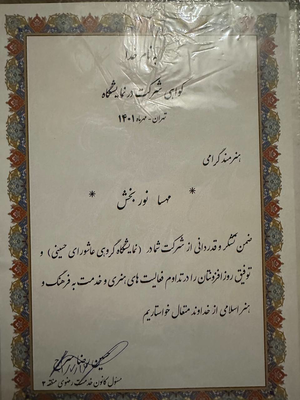 به نام خدا
گواهی شرکت در نمایشگاه
تهران - مهرماه ۱۴۰۱
هنرمند گرامی
* مهسا نوربخش *
ضمن تشکر و قدردانی از شرکت شما در (نمایشگاه گروهی عاشورای حسینی) و
توفیق روزافزونتان را در تداوم فعالیت های هنری و خدمت به فرهنگ و
هنر اسلامی از خداوند متعال خواستاریم
مسئول کانون خدمت رضوی منطقه ۲